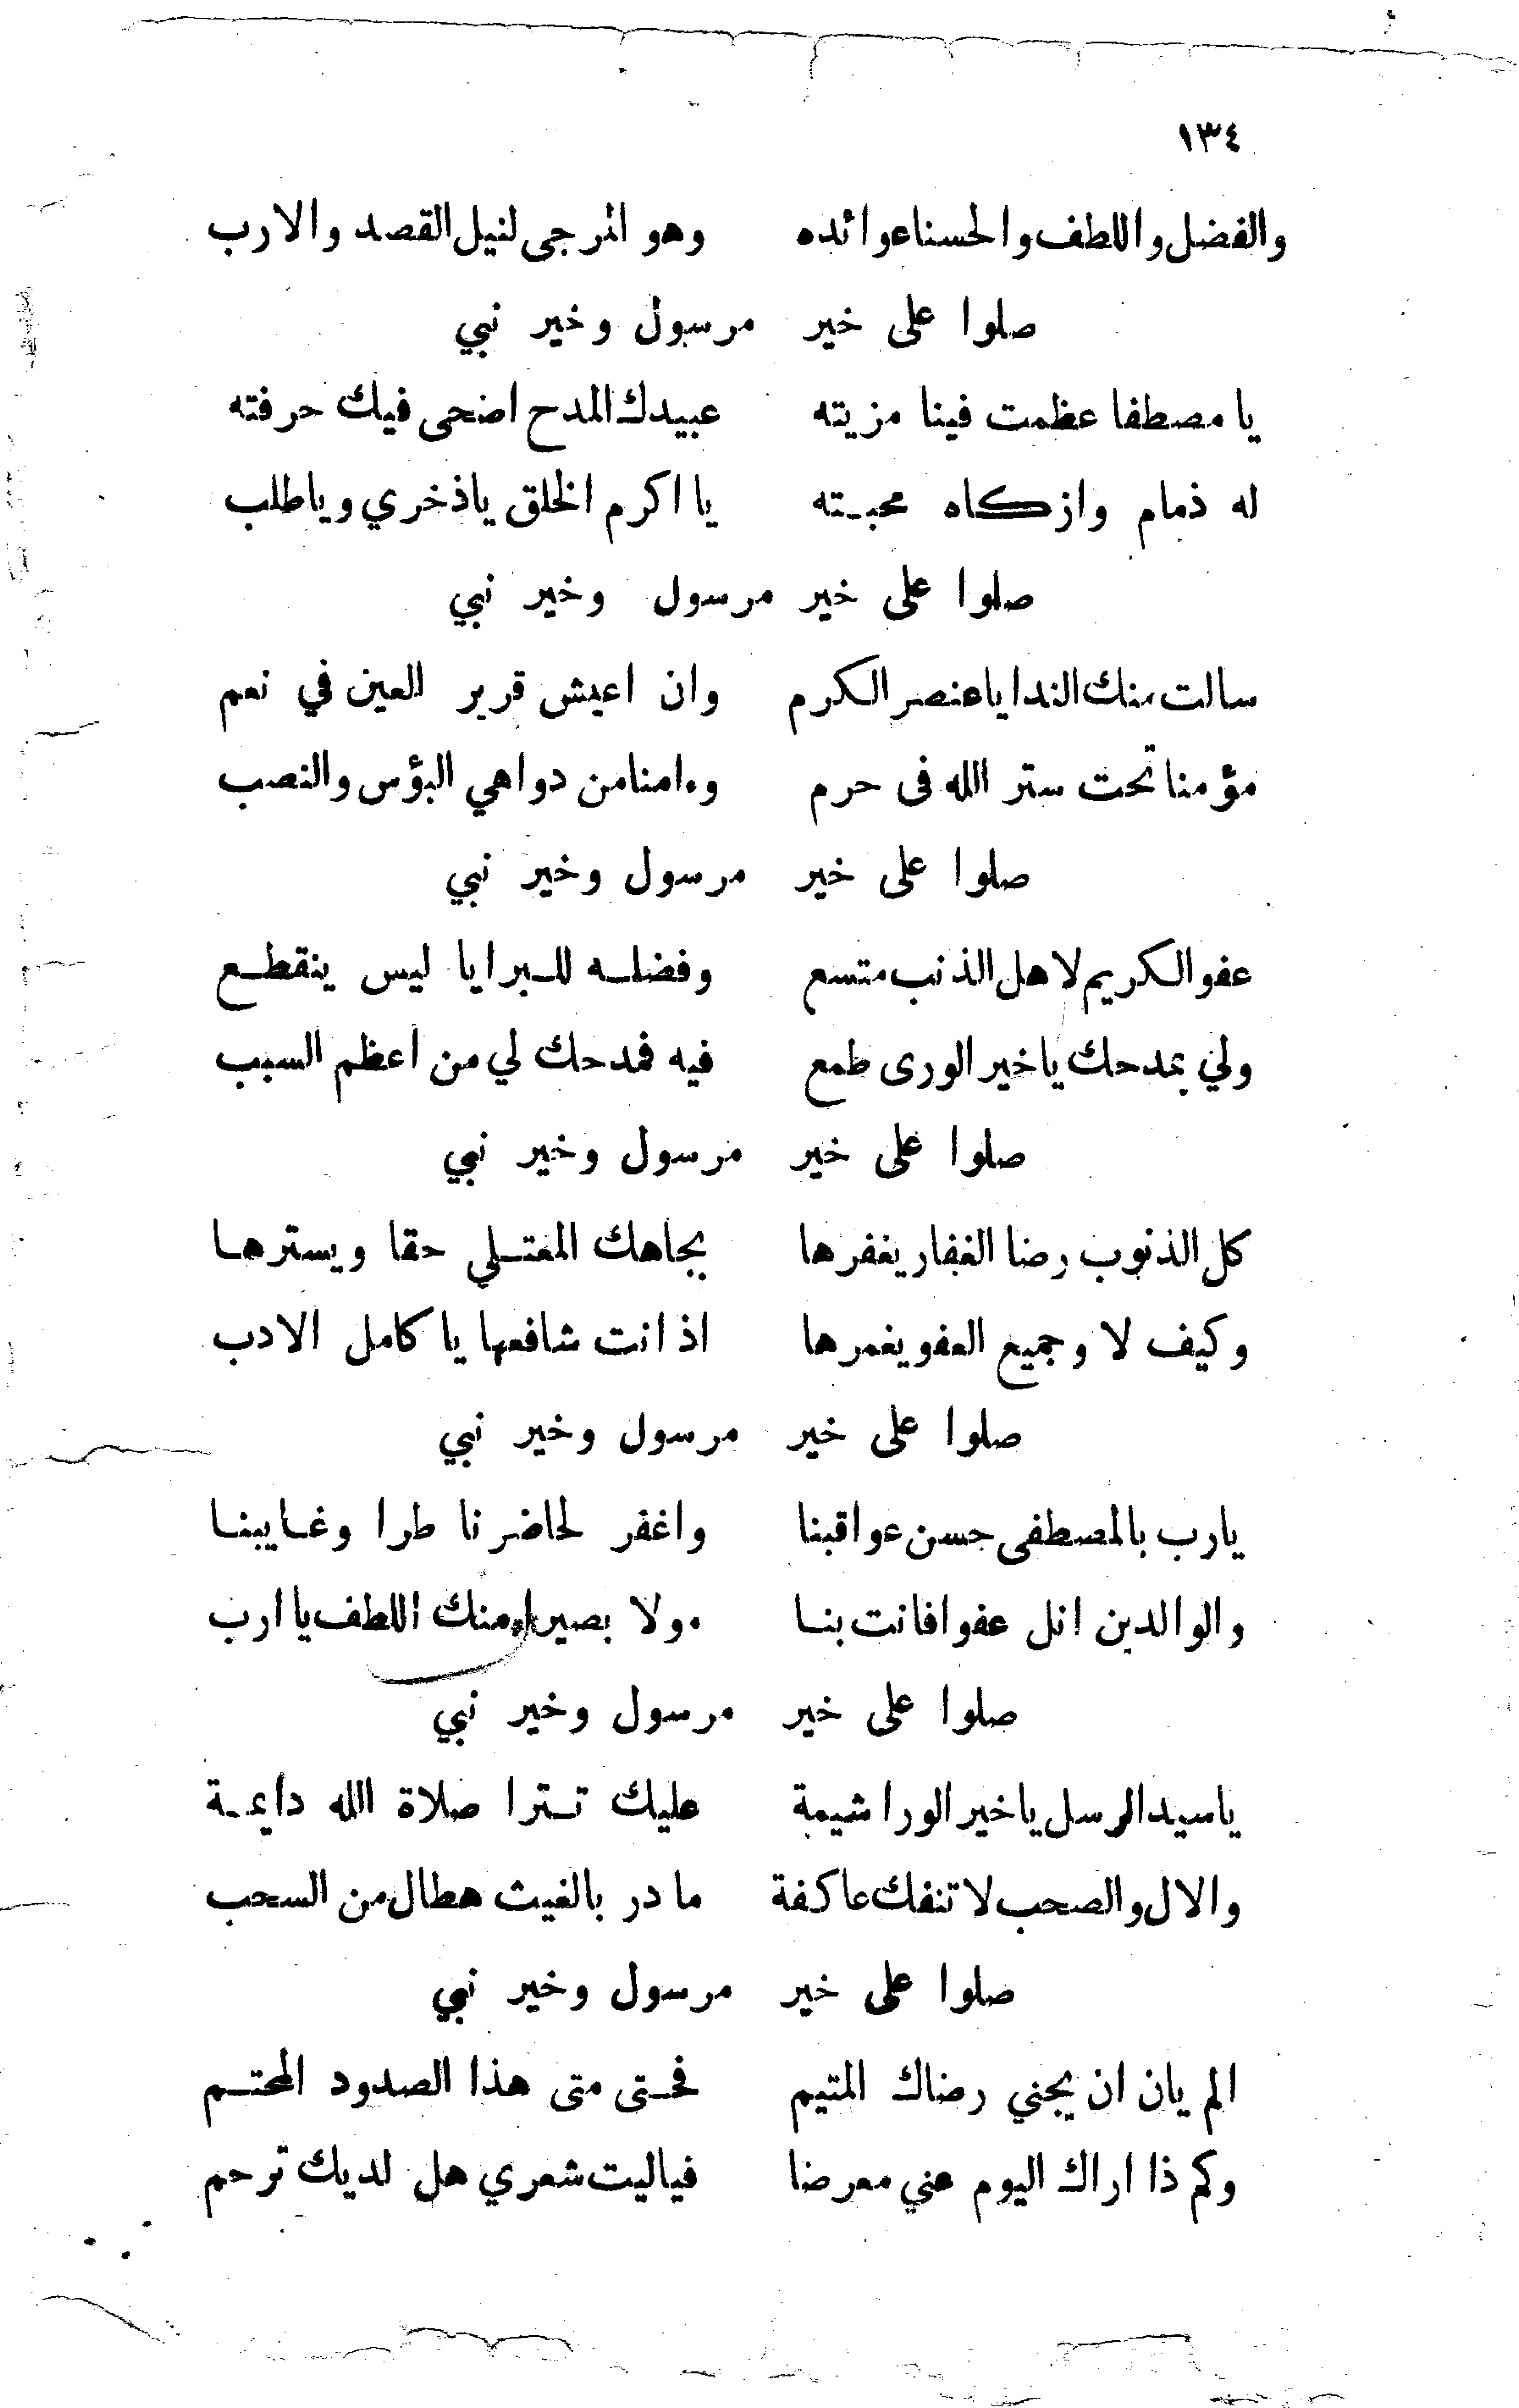 ١٣٤
والفضل واللطف والحسنا عوائده وهو المرجى لنيل القصد والارب
صلوا على خير مرسول وخير نبي
يا مصطفا عظمت فينا مزيته عبيدك المدح اضحى فيك حرفته
له ذمام وازكاه محبته يا اكرم الخلق ياذخري وياطلب
صلوا على خير مرسول وخير نبي
سالت منك الندا ياعنصر الكرم وان اعيش قرير العين في نعم
مؤمنا تحت ستر الله فى حرم وءامنا من دواهي البؤس والنصب
صلوا على خير مرسول وخير نبي
عفو الكريم لاهل الذنب متسع وفضله للبرايا ليس ينقطع
ولي بمدحك ياخير الورى طمع فيه فمدحك لي من اعظم السبب
صلوا على خير مرسول وخير نبي
كل الذنوب رضا الغفار يغفرها بجاهك المعتلي حقا ويسترها
وكيف لا وجميع العفو يغمرها اذ انت شافعها يا كامل الادب
صلوا على خير مرسول وخير نبي
يارب بالمصطفى حسن عواقبنا واغفر لحاضرنا طرا وغايبنا
والوالدين انل عفوا فانت بنا ولا بصير منك اللطف يا ارب
صلوا على خير مرسول وخير نبي
ياسيد الرسل ياخير الورا شيمة عليك تترا صلاة الله دايمة
والال والصحب لا تنفك عاكفة ما در بالغيث هطال من السحب
صلوا على خير مرسول وخير نبي
الم يان ان يجني رضاك المتيم فحتى متى هذا الصدود المحتم
وكم ذا اراك اليوم عني معرضا فياليت شعري هل لديك ترحم